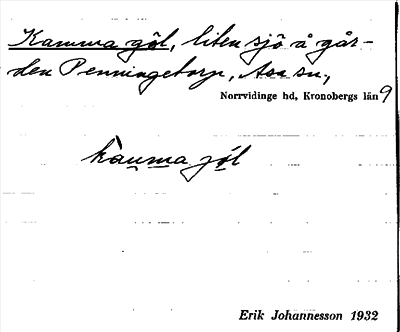 Kamma göl, liten sjö å går-
den Penningetorp, Asa sn,
Norrvidinge hd, Kronobergs län 9
kamma göl
Erik Johannesson 1932